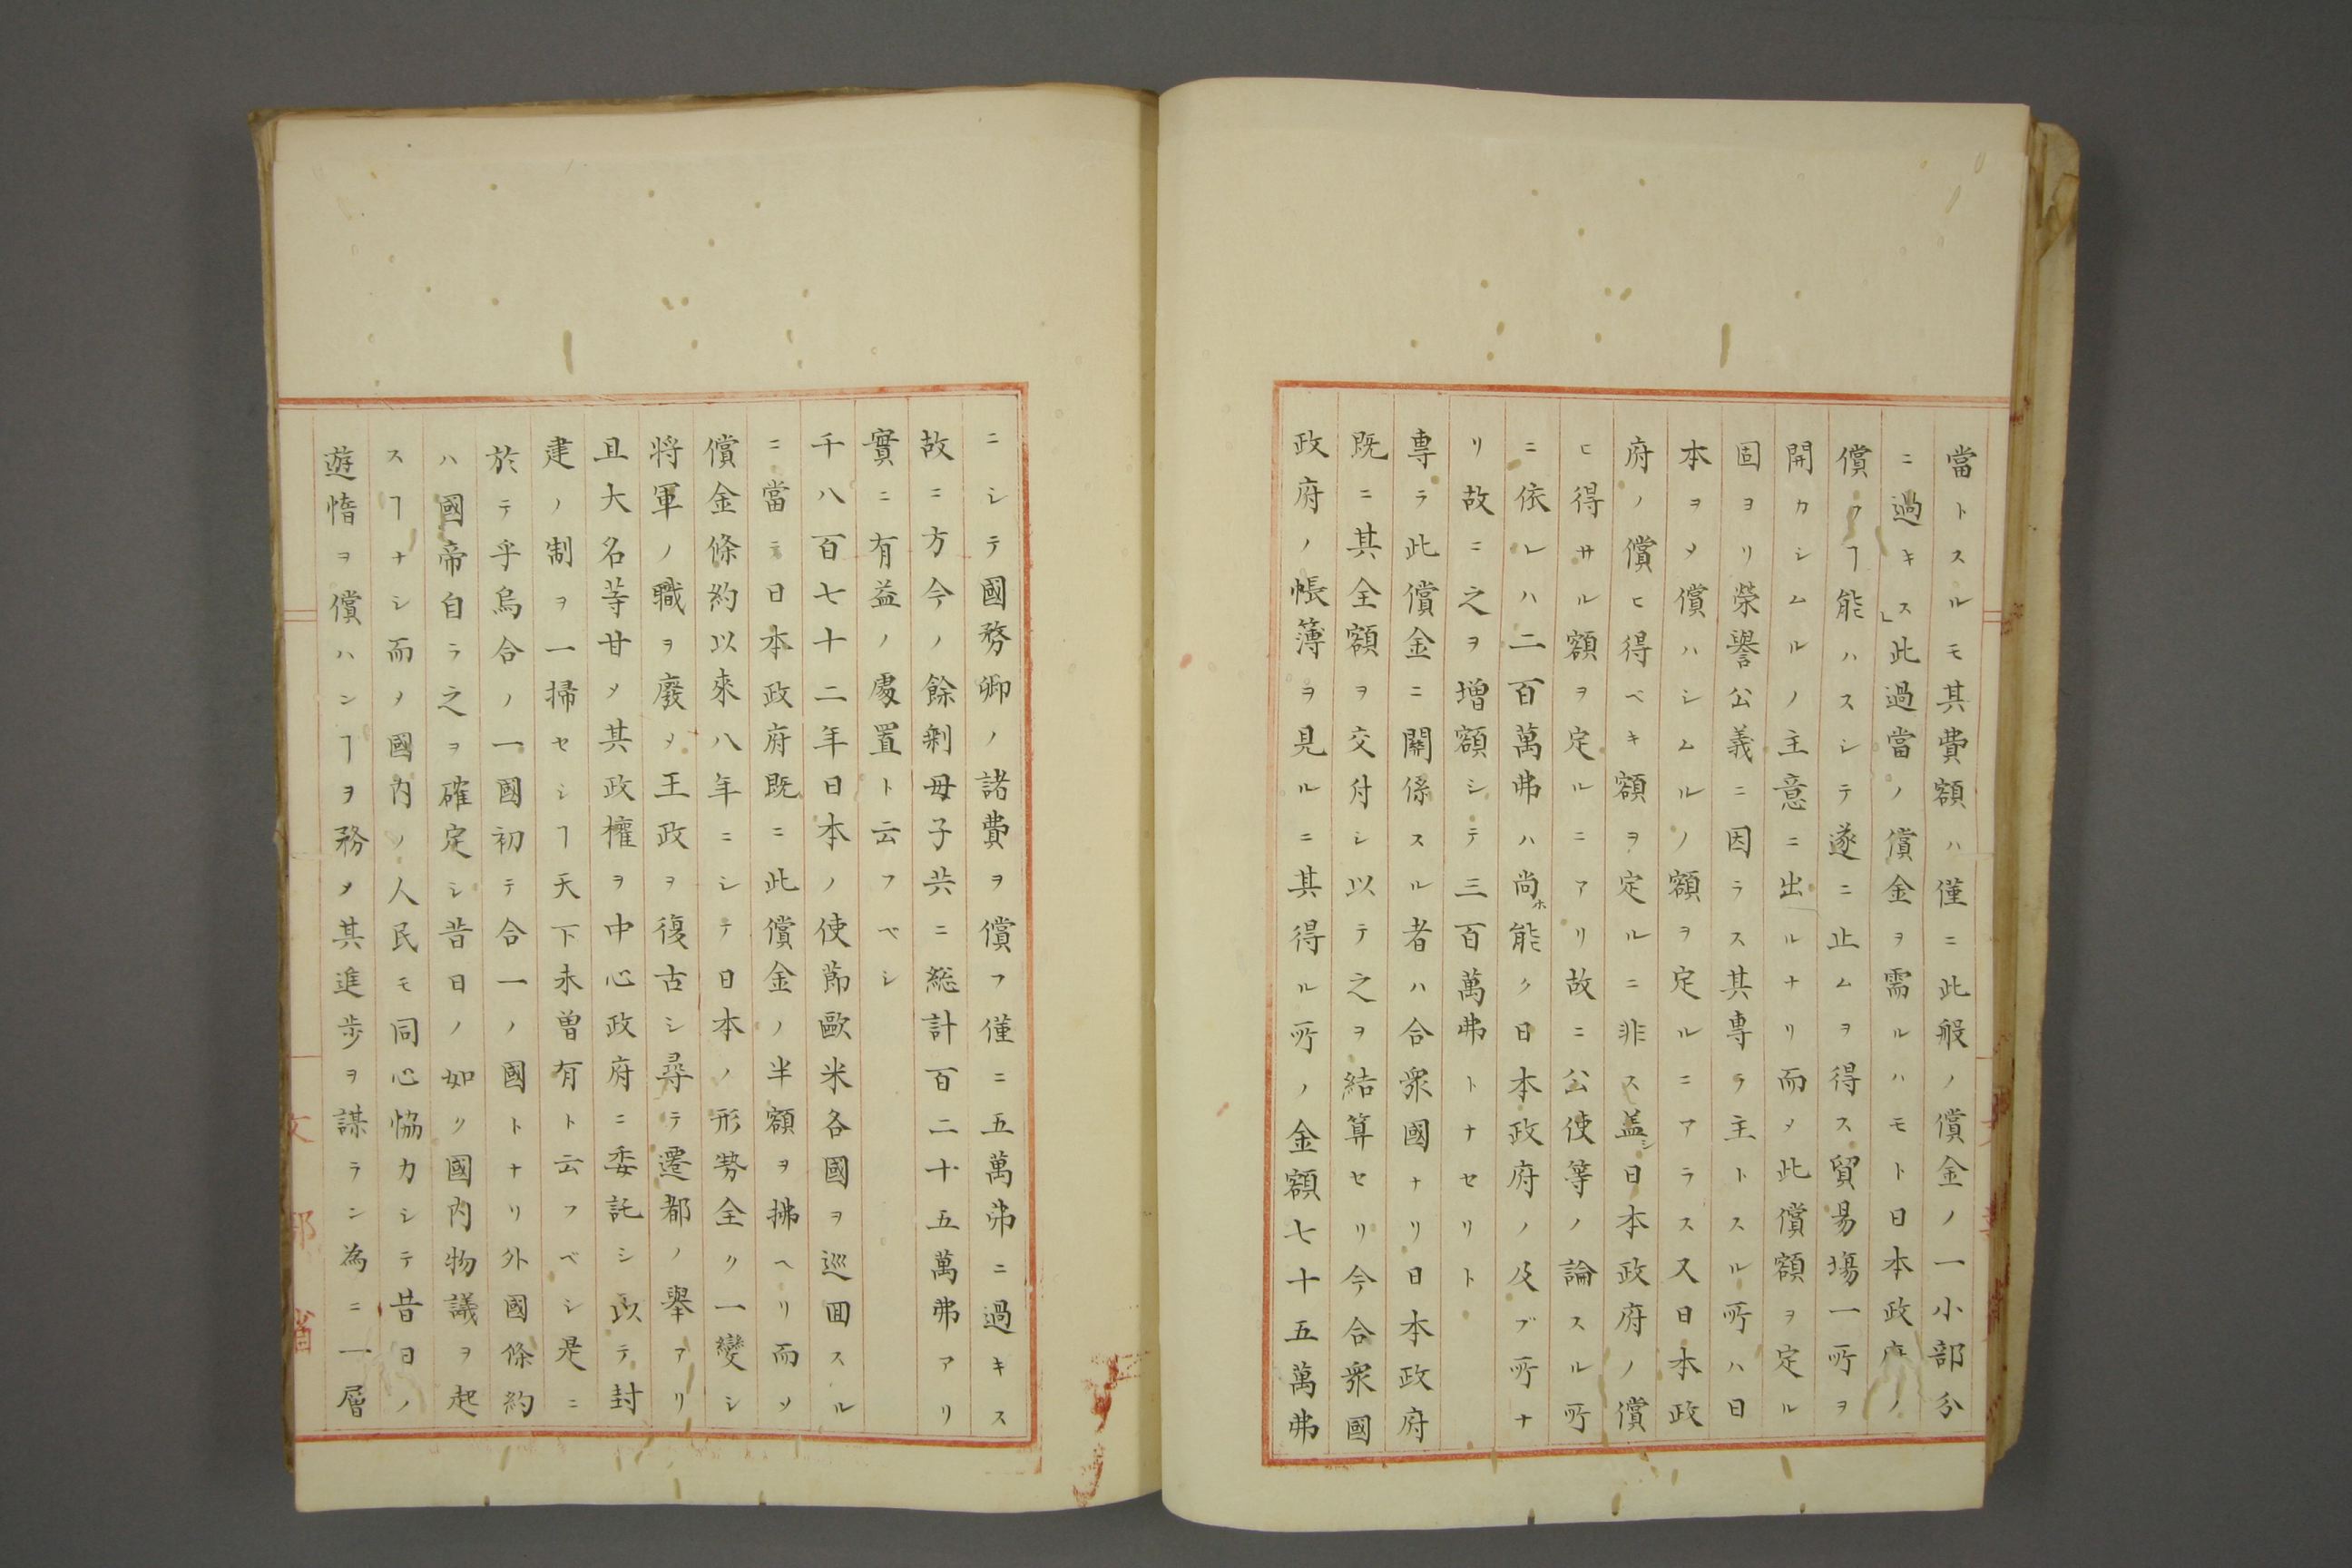 當トスルモ其費額ハ僅ニ此般ノ償金ノ一小部分
ニ過キス」此過當ノ償金ヲ需ルハモト日本政府ノ
償フヿ能ハスシテ遂ニ止ムヲ得ス貿易場一所ヲ
開カシムルノ主意ニ出ルナリ而メ此償額ヲ定ル
固ヨリ榮譽公義ニ因ラス其専ラ主トスル所ハ日
本ヲメ償ハシムルノ額ヲ定ルニアラス又日本政
府ノ償ヒ得ベキ額ヲ定ルニ非ス盖シ日本政府ノ償
ヒ得サル額ヲ定ルニアリ故ニ公使等ノ論スル所
ニ依レハ二百萬弗ハ尚ホ能ク日本政府ノ及ブ所ナ
リ故ニ之ヲ増額シテ三百萬弗トナセリト
専ラ此償金ニ關係スル者ハ合衆國ナリ日本政府
既ニ其全額ヲ交付シ以テ之ヲ結算セリ今合衆國
政府ノ帳簿ヲ見ルニ其得ル所ノ金額七十五萬弗
ニシテ國務卿ノ諸費ヲ償フ僅ニ五萬弗ニ過キス
故ニ方今ノ餘剰母子共ニ総計百二十五萬弗アリ
實ニ有益ノ處置ト云フベシ
千八百七十二年日本ノ使節歐米各國ヲ巡囬スル
ニ當テ日本政府既ニ此償金ノ半額ヲ拂ヘリ而ソ
償金條約以來八年ニシテ日本ノ形勢全ク一變シ
将軍ノ職ヲ廢メ王政ヲ復古シ尋テ遷都ノ舉アリ
且大名等甘メ其政權ヲ中心政府ニ委託シ以テ封
建ノ制ヲ一掃セシヿ天下未曽有ト云フベシ是ニ
於テ乎烏合ノ一國初テ合一ノ國トナリ外國條約
ハ國帝自ラ之ヲ確定シ昔日ノ如ク國内物議ヲ起
スヿナシ而ノ國内ノ人民モ同心恊力シテ昔日ノ
遊惰ヲ償ハンヿヲ務メ其進歩ヲ謀ラン為ニ一層
文部省